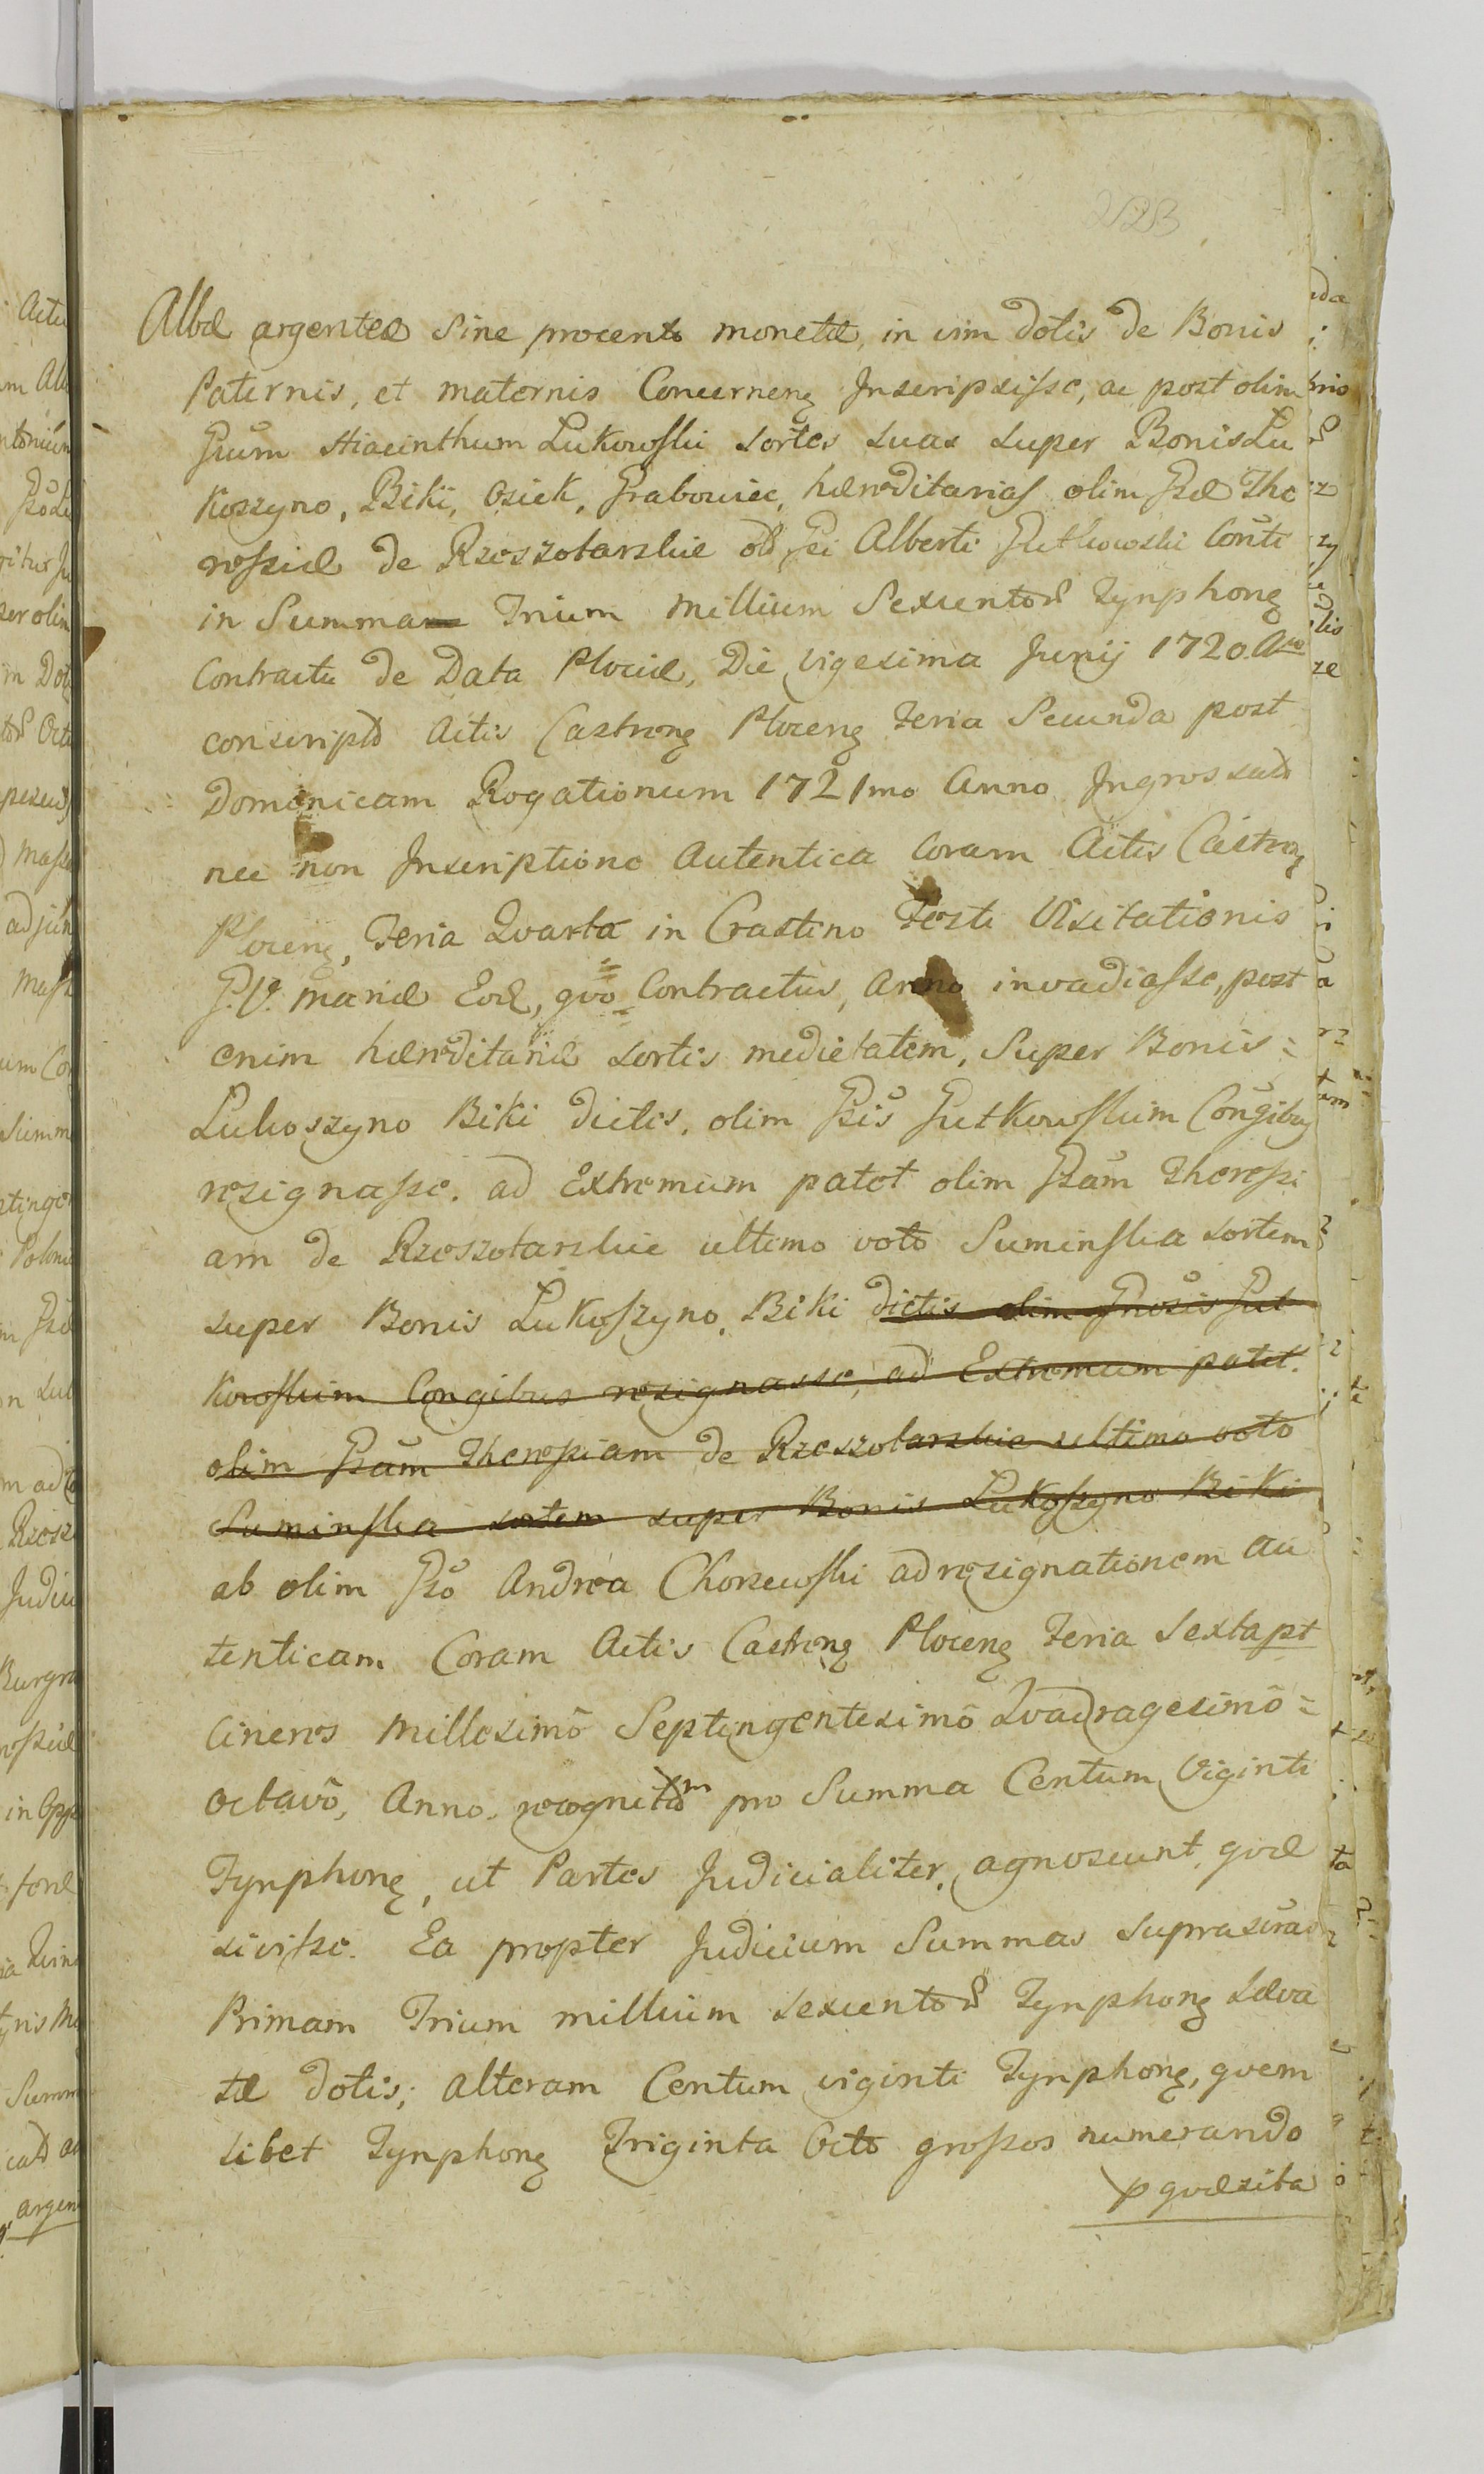 Albæ argenteæ sine procento monetæ, in vim dotis de Bonis
Paternis, et maternis Concernenꝫ Inscripsiſse, ac post olim
Gnum Hiacinthum Lukowſki sortes suas super Bonis Lu
koszyno, Biki, Osiek, Grabowiec, hæreditarias olim Gsæ The
reſsiæ de Rzeszotarskie olim Gsi Alberti Gutkowski Conti
in Summa Trium Millium Sexcentor Tynphonꝫ
Contractu de Data Plociæ, Die vigesima Junij 1720. Ano
conscripto Actis Castrenꝫ Plocenꝫ Feria Secunda post
Dominicam Rogationum 1721mo Anno Ingrossato
nec non Inscriptione Autentica Coram Actis Castrenꝫ
Plocenꝫ, Feria Qvarta in Crastino Festi Visitationis
B. V. Mariæ Eod, qvo Contractus, Anno invadiaſse, post
enim hæreditariæ sortis medietatem, Super Bonis =
Lukoszyno Biki dictis, olim Gsis Gutkowſkim Congibus
resignaſse. ad Extremum patet olim Gsam Thereſsi
am de Rzeszotarskie ultimo voto Suminſka sortem
super Bonis Lukoſzyno, Biki dictis olim Gnosis Gut
kowſkim Congibus resignasse, ad Extremum patet.
olim Gsam Thereſsiam de Rzeszotarskie ultimo voto
Suminſka sortem super Bonis Lukoſzyno Biki
ab olim Gso Andrea Chorzewſki ad resignationem au
tenticam Coram Actis Castrenꝫ Plocenꝫ Feria Sexta pt
Cineres Millesimô Septingentesimô Qvadragesimô =
octavô, Anno. recognitam pro Summa Centum Viginti
Tynphonꝫ, ut Partes Judicialiter, agnoscunt, qvæ
siviſse. Ea propter Judicium Summas suprascras
Primam Trium millium sexcentor Tynphonꝫ Læva
tæ dotis; alteram Centum viginti Tynphonꝫ, qvem
libet Tynphonꝫ Triginta Octo groſsos numerando
p qvæsita